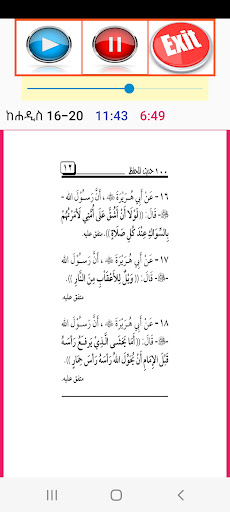 Exit
ከሐዲስ 16-20 11:43 6:49
١٠٠ حديث للحفظ ١٢
١٦- عَنْ أَبِي هُرَيْرَةَ ﷺ ، أَنَّ رَسُوْلَ اللهِ -
ﷺ- قَالَ: ((لَوْلَا أَنْ أَشُقَّ عَلَى أُمَّتِي لَأَمَرْتُهُمْ
بِالسِّوَاكِ عِنْدَ كُلِّ صَلَاةٍ)). متفق عليه.
١٧- عَنْ أَبِي هُرَيْرَةَ ، أَنَّ رَسُوْلَ اللهِ
-ﷺ- قَالَ: ((وَيْلٌ لِلأَعْقَابِ مِنَ النَّارِ)).
متفق عليه.
١٨- عَنْ أَبِي هُرَيْرَةَ ، أَنَّ رَسُوْلَ اللهِ
-ﷺ- قَالَ: ((أَمَا يَخْشَى الَّذِيْ يَرْفَعُ رَأْسَهُ
قَبْلَ الإِمَامِ أَنْ يُحَوِّلَ اللهُ رَأْسَهُ رَأْسَ حِمَارٍ)).
متفق عليه.